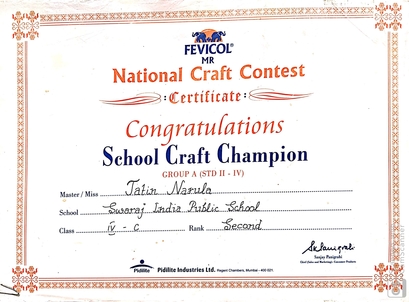 FEVICOL®
MR
National Craft Contest
: Certificate :
Congratulations
School Craft Champion
GROUP A (STD II - IV)
Master / Miss Jatin Narula
School Swaraj India Public School
Class IV - C Rank Second
Sanjay Panigrahi
Pidilite Pidilite Industries Ltd. Regent Chambers, Mumbai - 400 021.